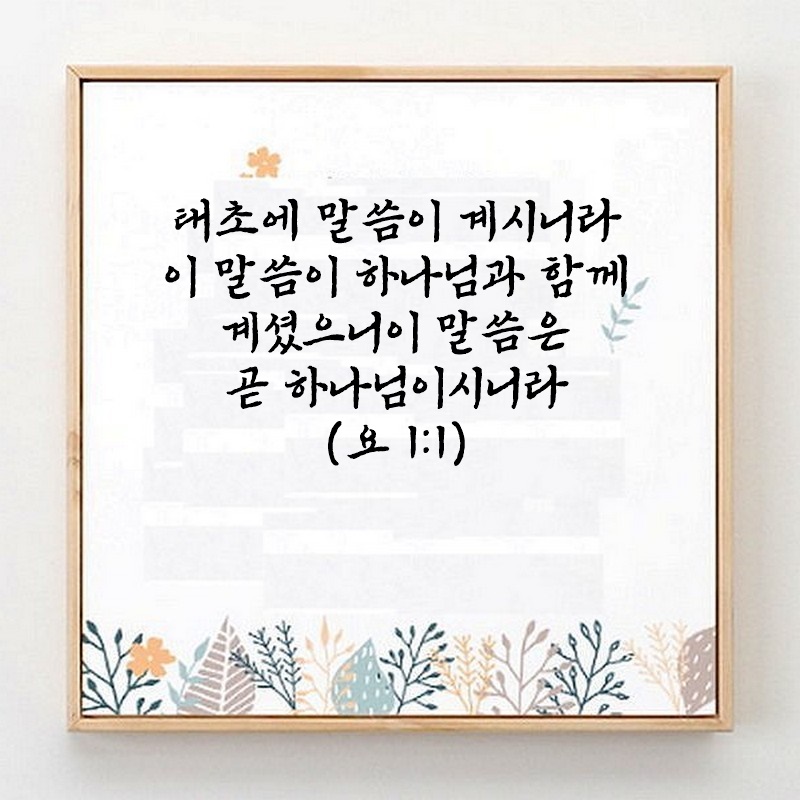 태초에 말씀이 계시니라
이 말씀이 하나님과 함께
계셨으니이 말씀은
곧 하나님이시니라
(요 1:1)